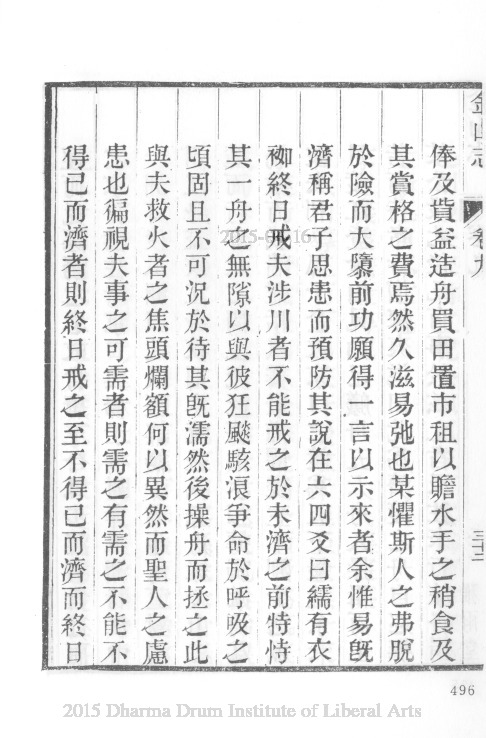 金山志
卷九
三十三
俸及貲益造舟買田置市租以贍水手之稍食及
其賞格之費焉然久滋易弛也某懼斯人之弗脫
於險而大隳前功願得一言以示來者余惟易旣
濟稱君子思患而預防其說在六四爻曰繻有衣
袽終日戒夫涉川者不能戒之於未濟之前特恃
其一舟之無隙以與彼狂飈駭浪爭命於呼吸之
頃固且不可況於待其旣濡然後操舟而拯之此
與夫救火者之焦頭爛額何以異然而聖人之慮
患也徧視夫事之可需者則需之有需之不能不
得已而濟者則終日戒之至不得已而濟而終日
496
2015 Dharma Drum Institute of Liberal Arts